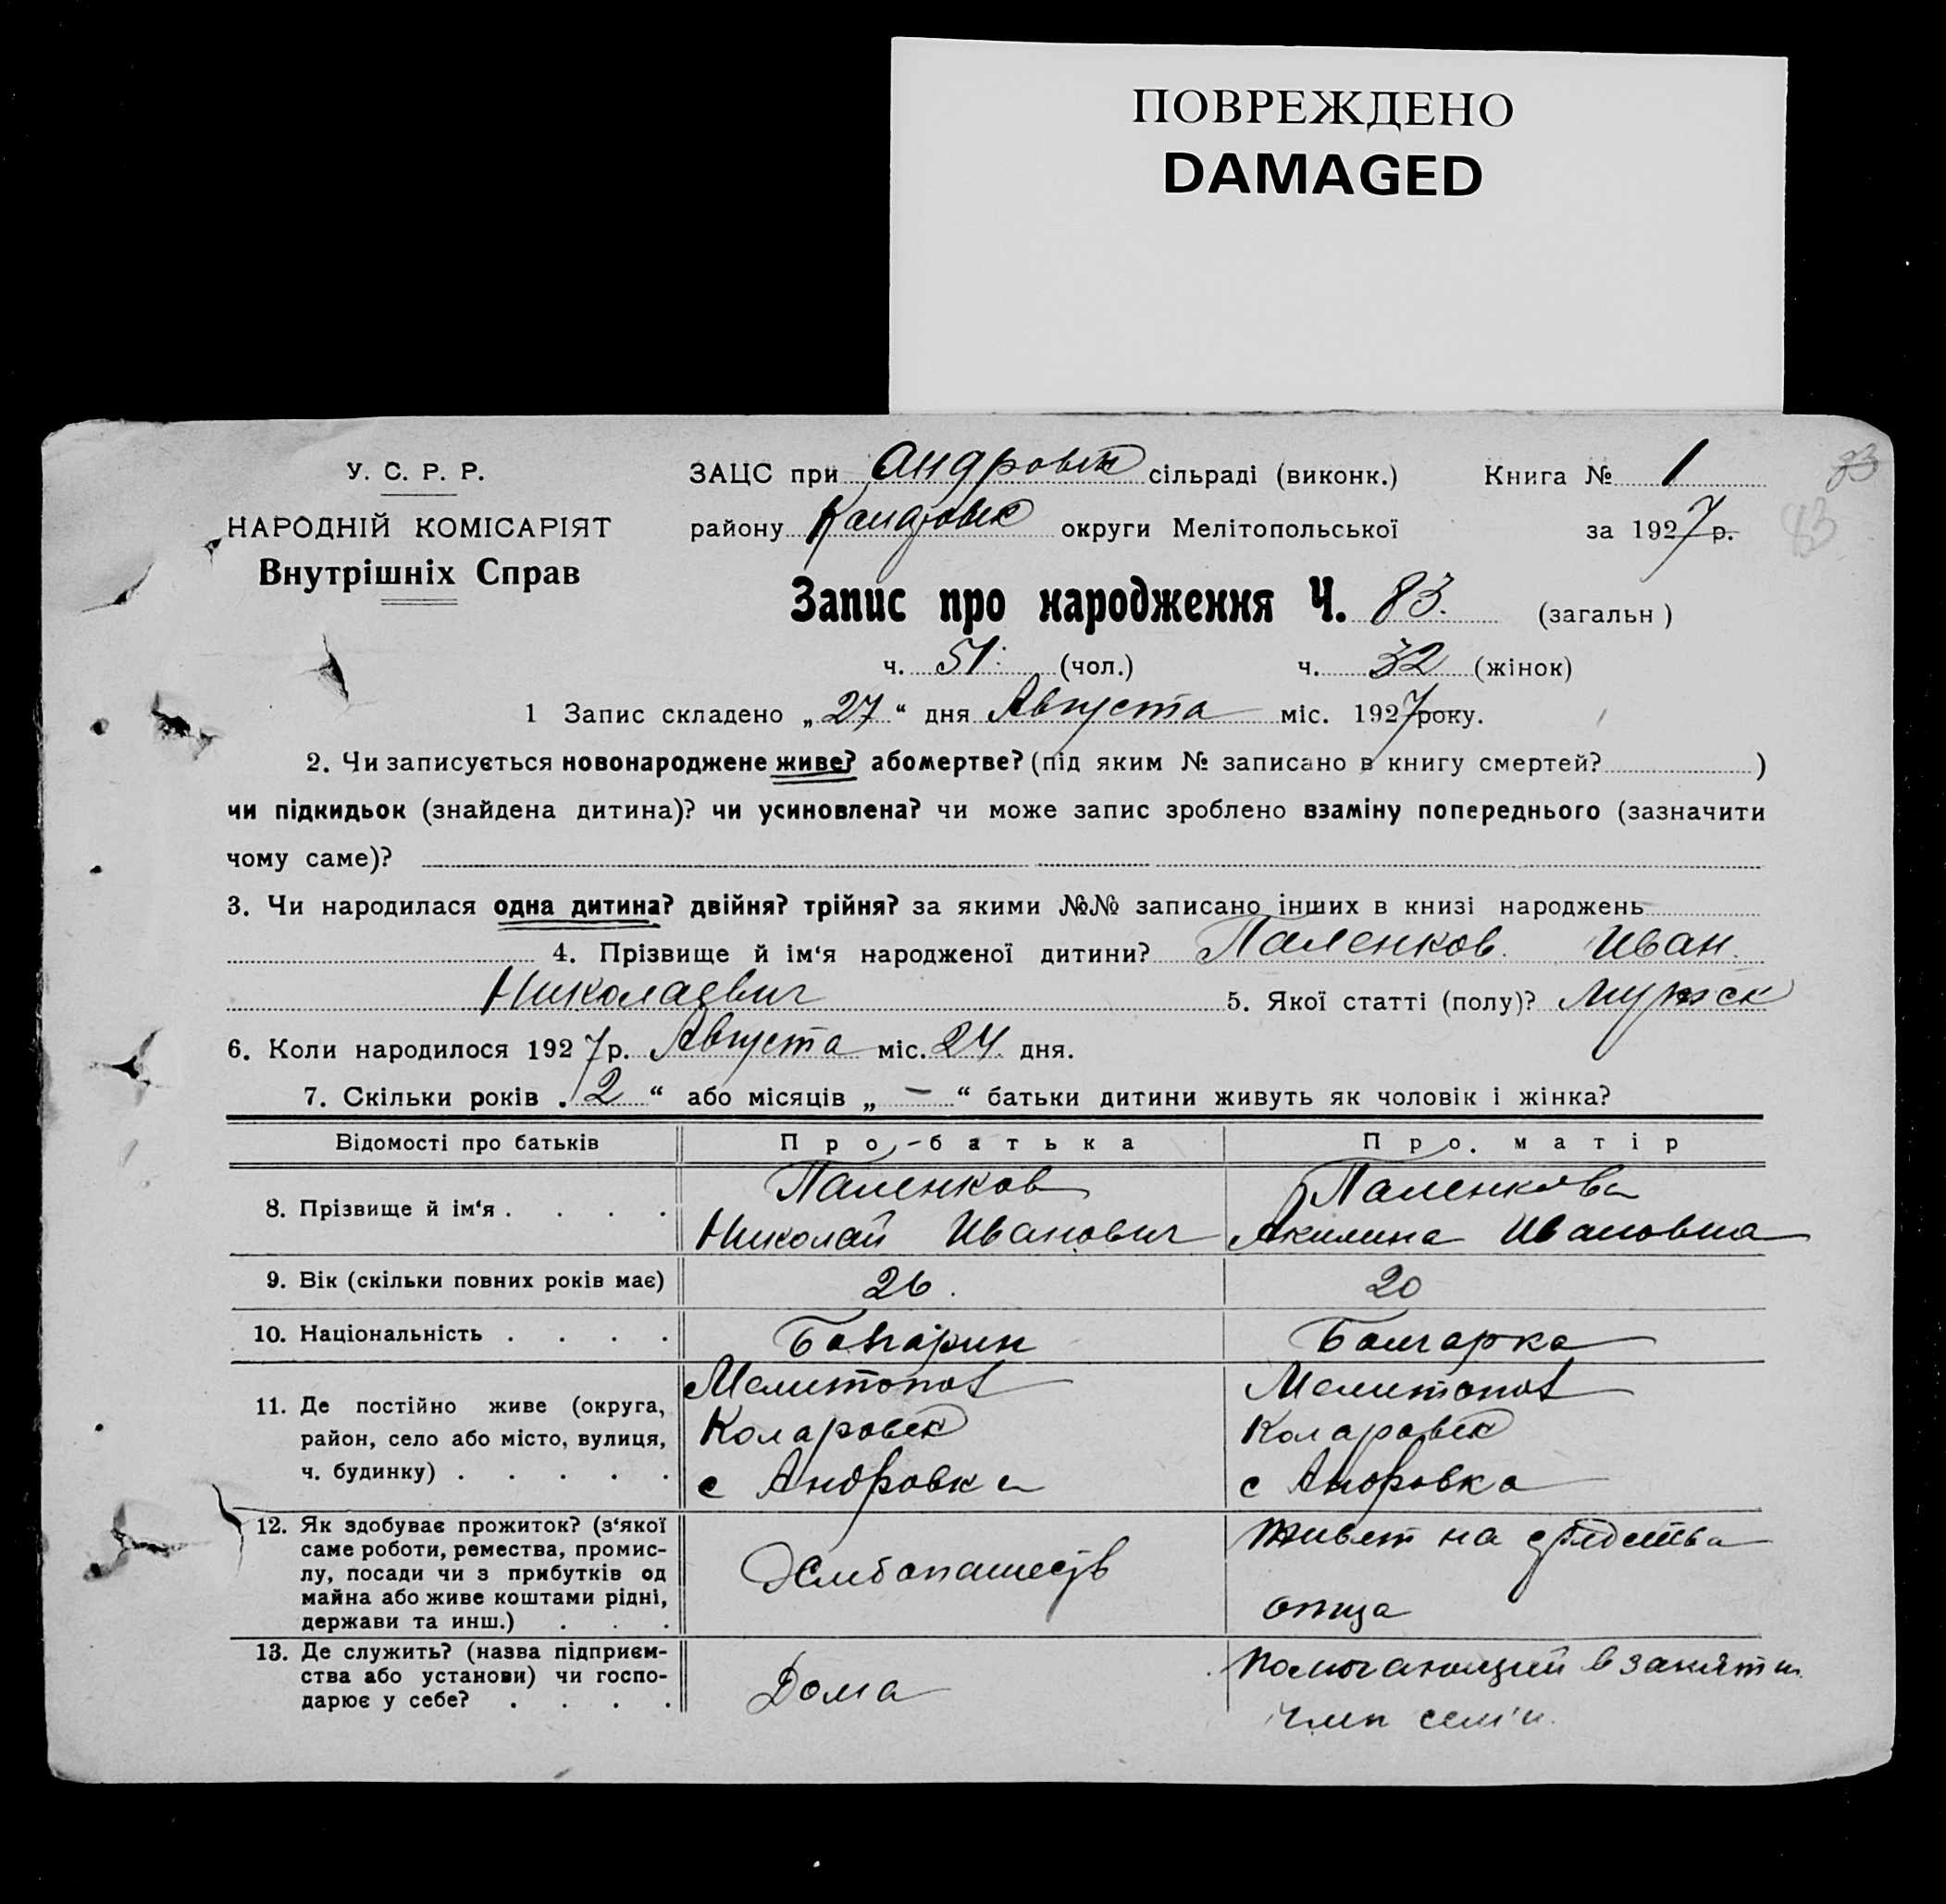 ПОВРЕЖДЕНО
DAMAGED
У. С. Р. Р.
НАРОДНІЙ КОМІСАРІЯТ
Внутрішніх Справ
ЗАЦС при Андровск сільраді (виконк.) Книга № 1
83
району округи Мелітопольської за 1927 р.
83
Запис про народження Ч. 83. (загальн)
ч. 51 (чол.) ч. 32 (жінок)
1 Запис складено „27“ дня Августа міс. 1927 року.
2. Чи записується новонароджене живе? або мертве? (під яким № записано в книгу смертей? )
чи підкидьок (знайдена дитина)? чи усиновлена? чи може запис зроблено взаміну попереднього (зазначити
чому саме)?
3. Чи народилася одна дитина? двійня? трійня? за якими №№ записано інших в книзі народжень
4. Прізвище й ім‘я народженої дитини? Паленков Иван
Николаевич 5. Якої статті (полу)? Мужск
6. Коли народилося 1927 р. Августа міс. 24 дня.
7. Скільки років „2“ або місяців „—“ батьки дитини живуть як чоловік і жінка?
Відомості про батьків Про батька Про матір
8. Прізвище й ім‘я . . . . Паленков Паленкова
Николай Иванович Акилина Ивановна
9. Вік (скільки повних років має) 26. 20
10. Національність . . . . Болгарин Болгарка
11. Де постійно живе (округа, район, село або місто, вулиця, ч. будинку) . . . . .
Мелитопол Мелитопол
Коларовск Коларовск
с Андровка с Андровка
12. Як здобуває прожиток? (з‘якої
саме роботи, ремества, промис-
лу, посади чи з прибутків од
майна або живе коштами рідні,
держави та инш.) . . .
Хлебопашеств Живет на средства
отца
13. Де служить? (назва підприєм-
ства або установи) чи госпо-
дарює у себе? . . . .
Дома Помогающий в занятии
член семьи.